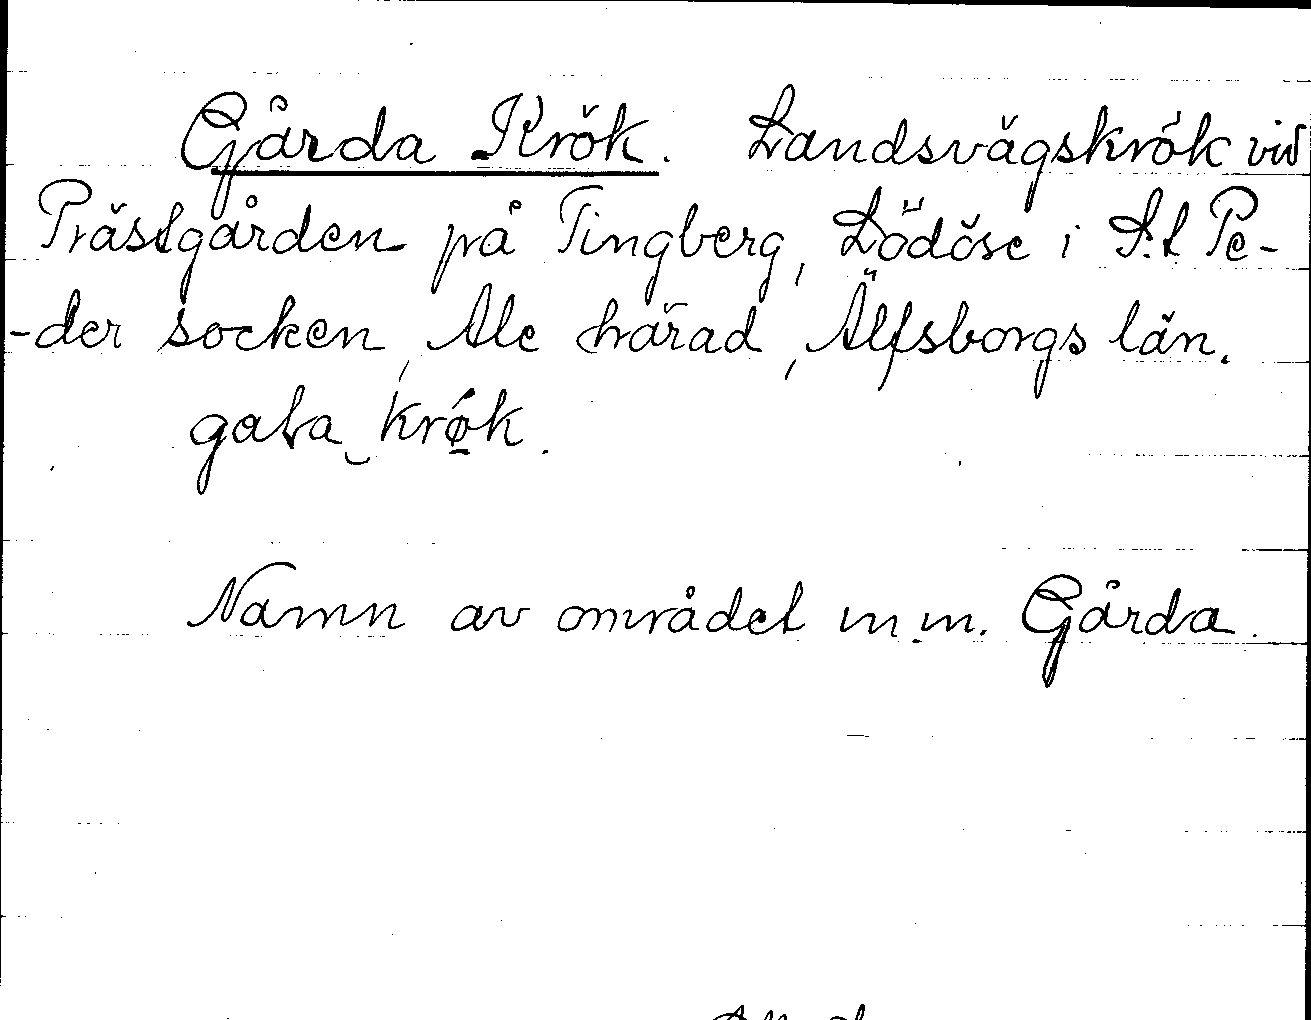 Gårda Krök. Landsvägskrök vid
Prästgården på Tingberg, Lödöse i S:t Pe-
-der socken, Ale härad, Älfsborgs län.
Namn av området m.m. Gårda.